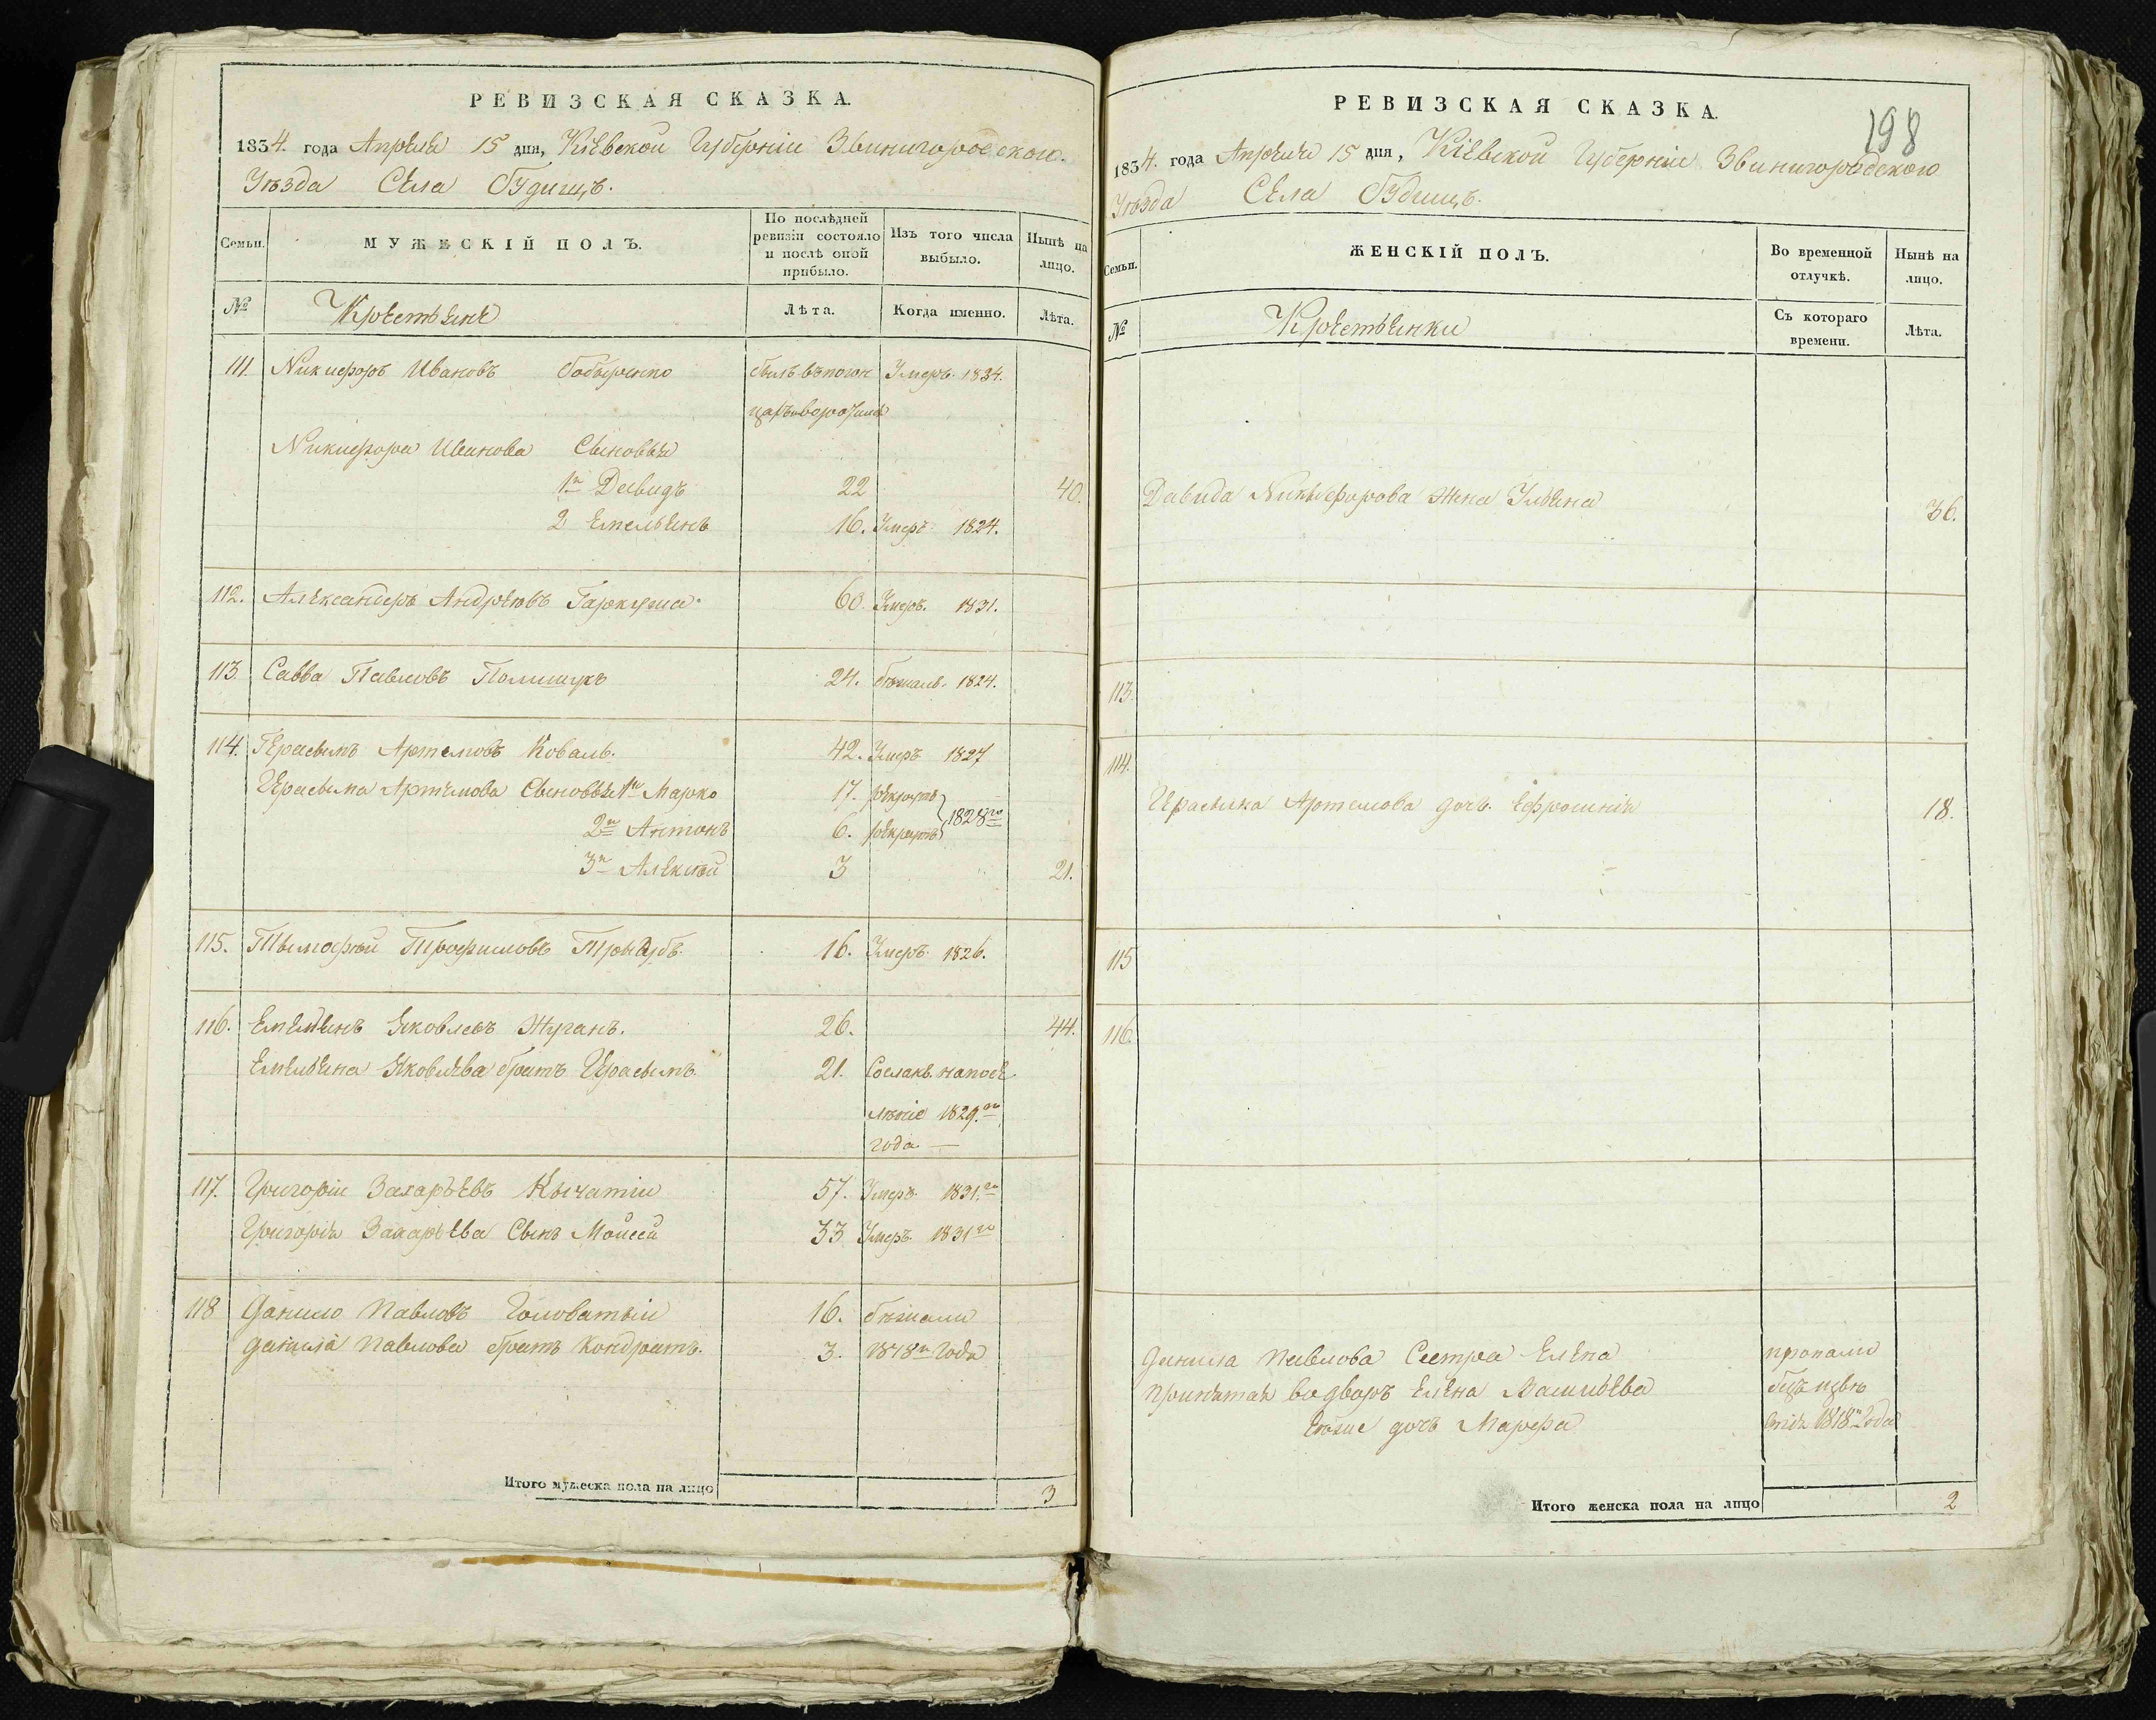 РЕВИЗСКАЯ СКАЗКА.
1834. года Апреля 15 дня, Кіевской Губерніи Звинигородского.
Уѣзда Села Будищъ.
Семьи.
МУЖЕСКІЙ ПОЛЪ.
По послѣдней ревизіи состояло и послѣ оной прибыло.
Изъ того числа выбыло.
Нынѣ на лицо.
№
Крестьяне
Лѣта.
Когда именно.
Лѣта.
111. Никифоръ Ивановъ Умеръ. 1834.
Никифора Иванова Сыновья
1й Давидъ 22 40.
2 Емельянъ 16. Умеръ. 1824.
112. Александеръ Андреювъ Гаркуша. 60. Умеръ. 1831.
113. Савва Павловъ Полишукъ 24. бѣжалъ. 1824.
114. Герасымъ Артемовъ Коваль. 42. Умеръ 1827
Герасыма Артемова Сыновья 1й Марко 17. рекрутъ
2й Антонъ 6. рекрутъ 1828го
3й Алексѣй 3 21.
115. Тымофѣй Трофимовъ 16. Умеръ. 1826.
116. Емельянъ Яковлевъ Жуганъ. 26. 44.
Емельяна Яковлева братъ Герасымъ. 21. Сосланъ. на посе
лѣніе 1829.го
года —
117. Григоріи Захарьевъ Кычатіи 57. Умеръ. 1831.го
Григорія Захарьева Сынъ Мойсей 33 Умеръ. 1831го
118 Данило Павловъ Головатыи 16. бѣжали
данила Павлова братъ Кондратъ. 3. 1818го года
Итого мужеска пола на лицо 3
РЕВИЗСКАЯ СКАЗКА.
198
1834. года Апреля 15 дня, Кіевской Губерніи Звинигородского
Уѣзда Села Будищъ.
Семьи.
ЖЕНСКІЙ ПОЛЪ.
Во временной отлучкѣ.
Нынѣ на лицо.
№
Крестьянки
Съ котораго времени.
Лѣта.
Давида Никифорова жена Ульяна 36.
113.
114.
Герасыма Артемова дочь. Ефросинія 18.
115
116.
Данила Павлова Сестра Елена пропали
принятая во дворъ Елена Васильева безъ
еюже дочь Марфа 1818го года
Итого женска пола на лицо 2